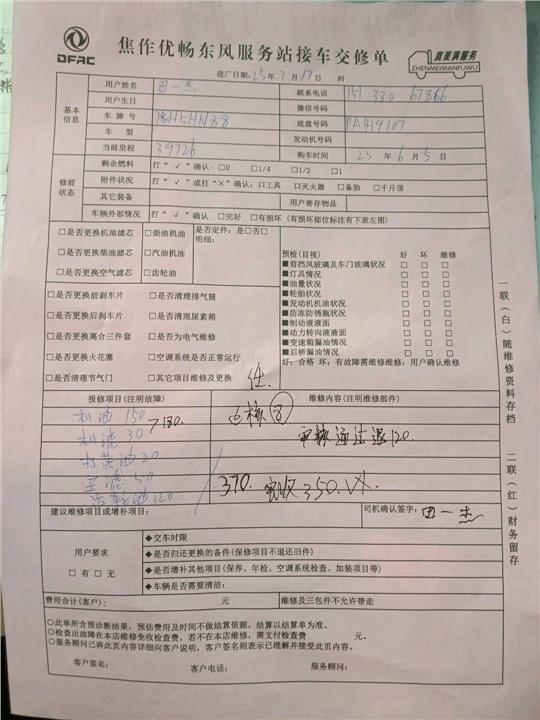 DFAC
焦作优畅东风服务站接车交修单
真美满服务
ZHENMEIMANFUWU
进厂日期:25年7月17日 时
基本信息
用户姓名 田一杰 联系电话 151 330 67866
用户生日 微信号码
车牌号 底盘号码 PA419107
车型 发动机号码
当前里程 39726 购车时间 23年6月5日
修前状态
剩余燃料 打“√”确认:□0 □1/4 □1/2 □1
附件状况 打“√”或打“×”确认:□工具 □灭火器 □备胎 □千斤顶
其它装备 用户寄存物品
车辆外部情况 打“√”确认 □完好 □有损坏(有损坏部位标注有下表左图)
□是否更换机油滤芯 □柴油机油 是否定件:是□否□
□是否更换柴油滤芯 □汽油机油 明细:
□是否更换空气滤芯 □齿轮油
□是否更换前刹车片 □是否清理排气筒
□是否更换后刹车片 □是否清理尿素箱
□是否更换离合三件套 □是否为电气维修
□是否更换火花塞 □空调系统是否正常运行
□是否清理节气门 □其它项目维修及更换
预检(目视) 好 坏 维修
■前挡风玻璃及车门玻璃状况 □ □ □
■灯具情况 □ □ □
■油量状况 □ □ □
■轮胎状况 □ □ □
■发动机机油状况 □ □ □
■防冻防锈瓶状况 □ □ □
■制动液液面 □ □ □
■动力转向液液面 □ □ □
■变速箱漏油情况 □ □ □
■后桥漏油情况 □ □ □
好:合格 坏:有故障需维修维修:用户确认维修
报修项目(注明故障) 维修内容(注明维修部件)
机油 150
机滤 30
180.
审核通过退120
打黄油 20
空滤 50
齿轮油 120
370. 实收350.
建议维修项目或增补项目: 司机确认签字: 田一杰
用户要求
□有 □无
◆交车时限
◆是否归还更换的备件(保修项目不退还旧件)
◆是否增补其他项目(保养、年检、空调系统检查、加装项目等)
◆车辆是否需要清洁:
费用合计(客户): 元 维修及三包件不允许带走
○此单所含预诊断结果,预估费用及时间不做结算依据,结算以结算单为准。
○检查出故障在本店维修免收检查费,若不在本店维修,需支付检查费 元。
○服务顾问已将此页内容详细向客户说明,客户签名则表示已理解并接受此页内容。
客户签名: 客户电话: 服务顾问:
一联(白)随维修资料存档
二联(红)财务留存